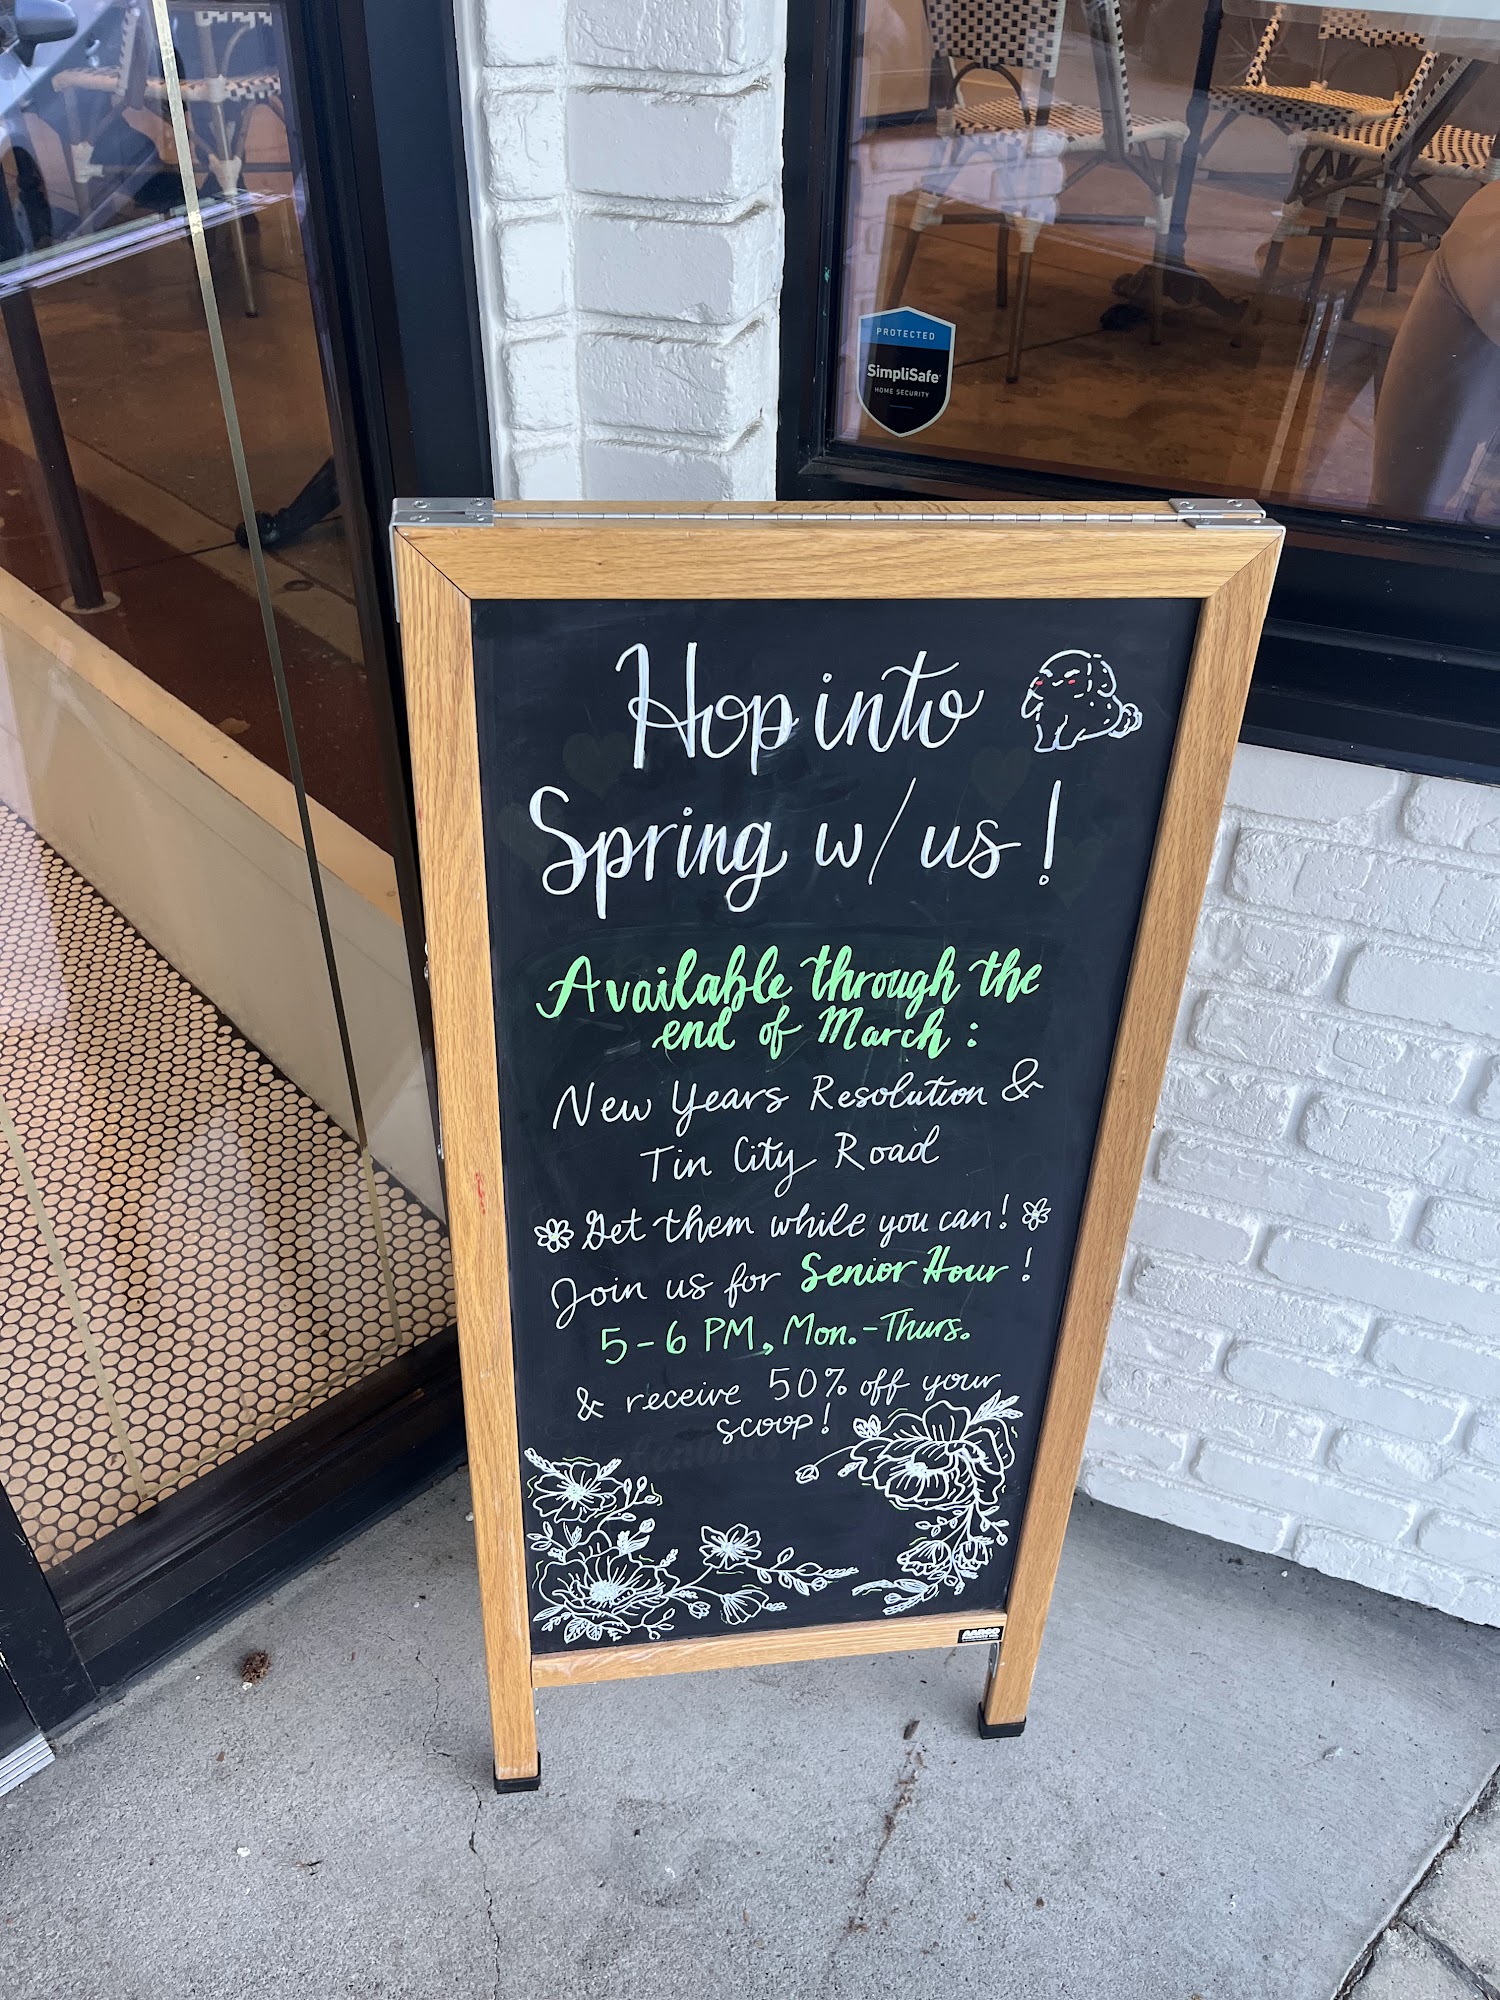 PROTECTED
SimpliSafe
HOME SECURITY
Hop into
Spring w/ us!
Available through the
end of March:
New Years Resolution &
Tin City Road
Get them while you can!
Join us for Senior Hour!
5-6 PM, Mon.-Thurs.
& receive 50% off your
scoop!
AARCO